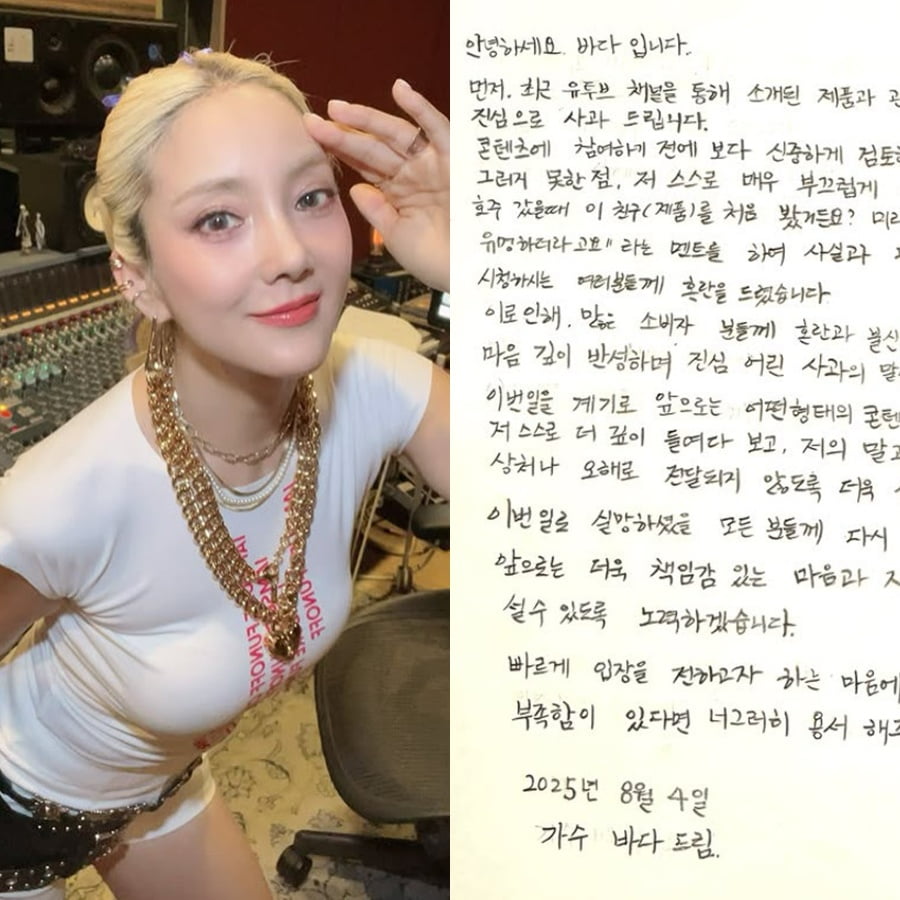 안녕하세요. 바다 입니다.
먼저, 최근 유투브 채널을 통해 소개된 제품과
진심으로 사과 드립니다.
콘텐츠에 참여하기 전에 보다 신중하게 검토하
그러지 못한 점, 저 스스로 매우 부끄럽게
호주 갔을때 이 친구(제품)를 처음 봤거든요? 미
유명하더라고요" 라는 멘트를 하여 사실과
시청하시는 여러분들께 혼란을 드렸습니다.
이로인해, 많은 소비자 분들께 혼란과 불신
마음 깊이 반성하며 진심 어린 사과의 말
이번일을 계기로 앞으로는 어떤형태의 콘텐
저 스스로 더 깊이 들여다 보고, 저의 말
상처나 오해로 전달되지 않도록 더욱
이번 일로 실망하셨을 모든 분들께 다시
앞으로는 더욱 책임감 있는 마음과
설수 있도록 노력하겠습니다.
빠르게 입장을 전하고자 하는 마음에
부족함이 있다면 너그러히 용서 해주
2025년 8월 4일
가수 바다 드림.